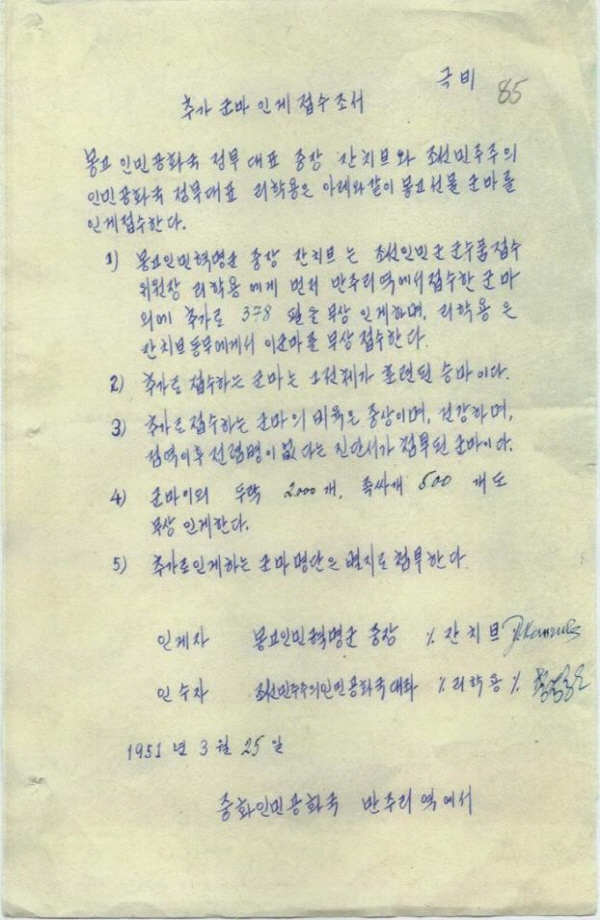 극비
85
추가 군마 인계 접수 조서
몽고 인민공화국 정부 대표 중장 잔치브와 조선민주주의
인민공화국 정부대표 리학용은 아래와같이 몽고선물 군마를
인계접수한다.
1) 몽고인민혁명군 중장 잔치브 는 조선인민군 군수품접수
위원장 리학용 에게 먼저 만주리역에서접수한 군마
외에 추가로 378 필을 무상 인계하며, 리학용 은
잔치브동무에게서 이군마를 무상 접수한다.
2) 추가로 접수하는 군마는 훈련된 승마이다.
3) 추가로접수하는 군마의 비육은 중상이며, 건강하며,
검역이후 전염병이 없다는 진단서가 첨부된 군마이다.
4) 군마이외 두락 2000개, 족싸개 500 개도
무상 인계한다.
5) 추가로인계하는 군마 명단은 별지로 첨부한다
인계자 몽고인민혁명군 중장 잔치브
인수자 조선민주주의인민공화국대좌 리학용
1951 년 3 월 25 일
중화인민공화국 만주리역에서